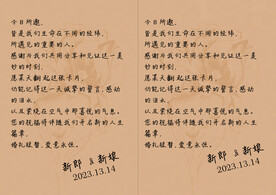 今日所邀，
皆是我们生命在不同的经纬，
所遇见的重要的人。
感谢与我们共同分享和见证这一美
妙的时刻，
愿某天翻起这张卡片，
仍能记得这一天诚挚的誓言，感动
的泪水，
以及萦绕在空气中那喜悦的气息。
您的祝福将伴随我们开启新的人生
篇章，
婚礼虽暂，爱意永恒。
新郎 & 新娘
2023.13.14
今日所邀，
皆是我们生命在不同的经纬，
所遇见的重要的人。
感谢与我们共同分享和见证这一美
妙的时刻，
愿某天翻起这张卡片，
仍能记得这一天诚挚的誓言，感动
的泪水，
以及萦绕在空气中那喜悦的气息。
您的祝福将伴随我们开启新的人生
篇章，
婚礼虽暂，爱意永恒。
新郎 & 新娘
2023.13.14